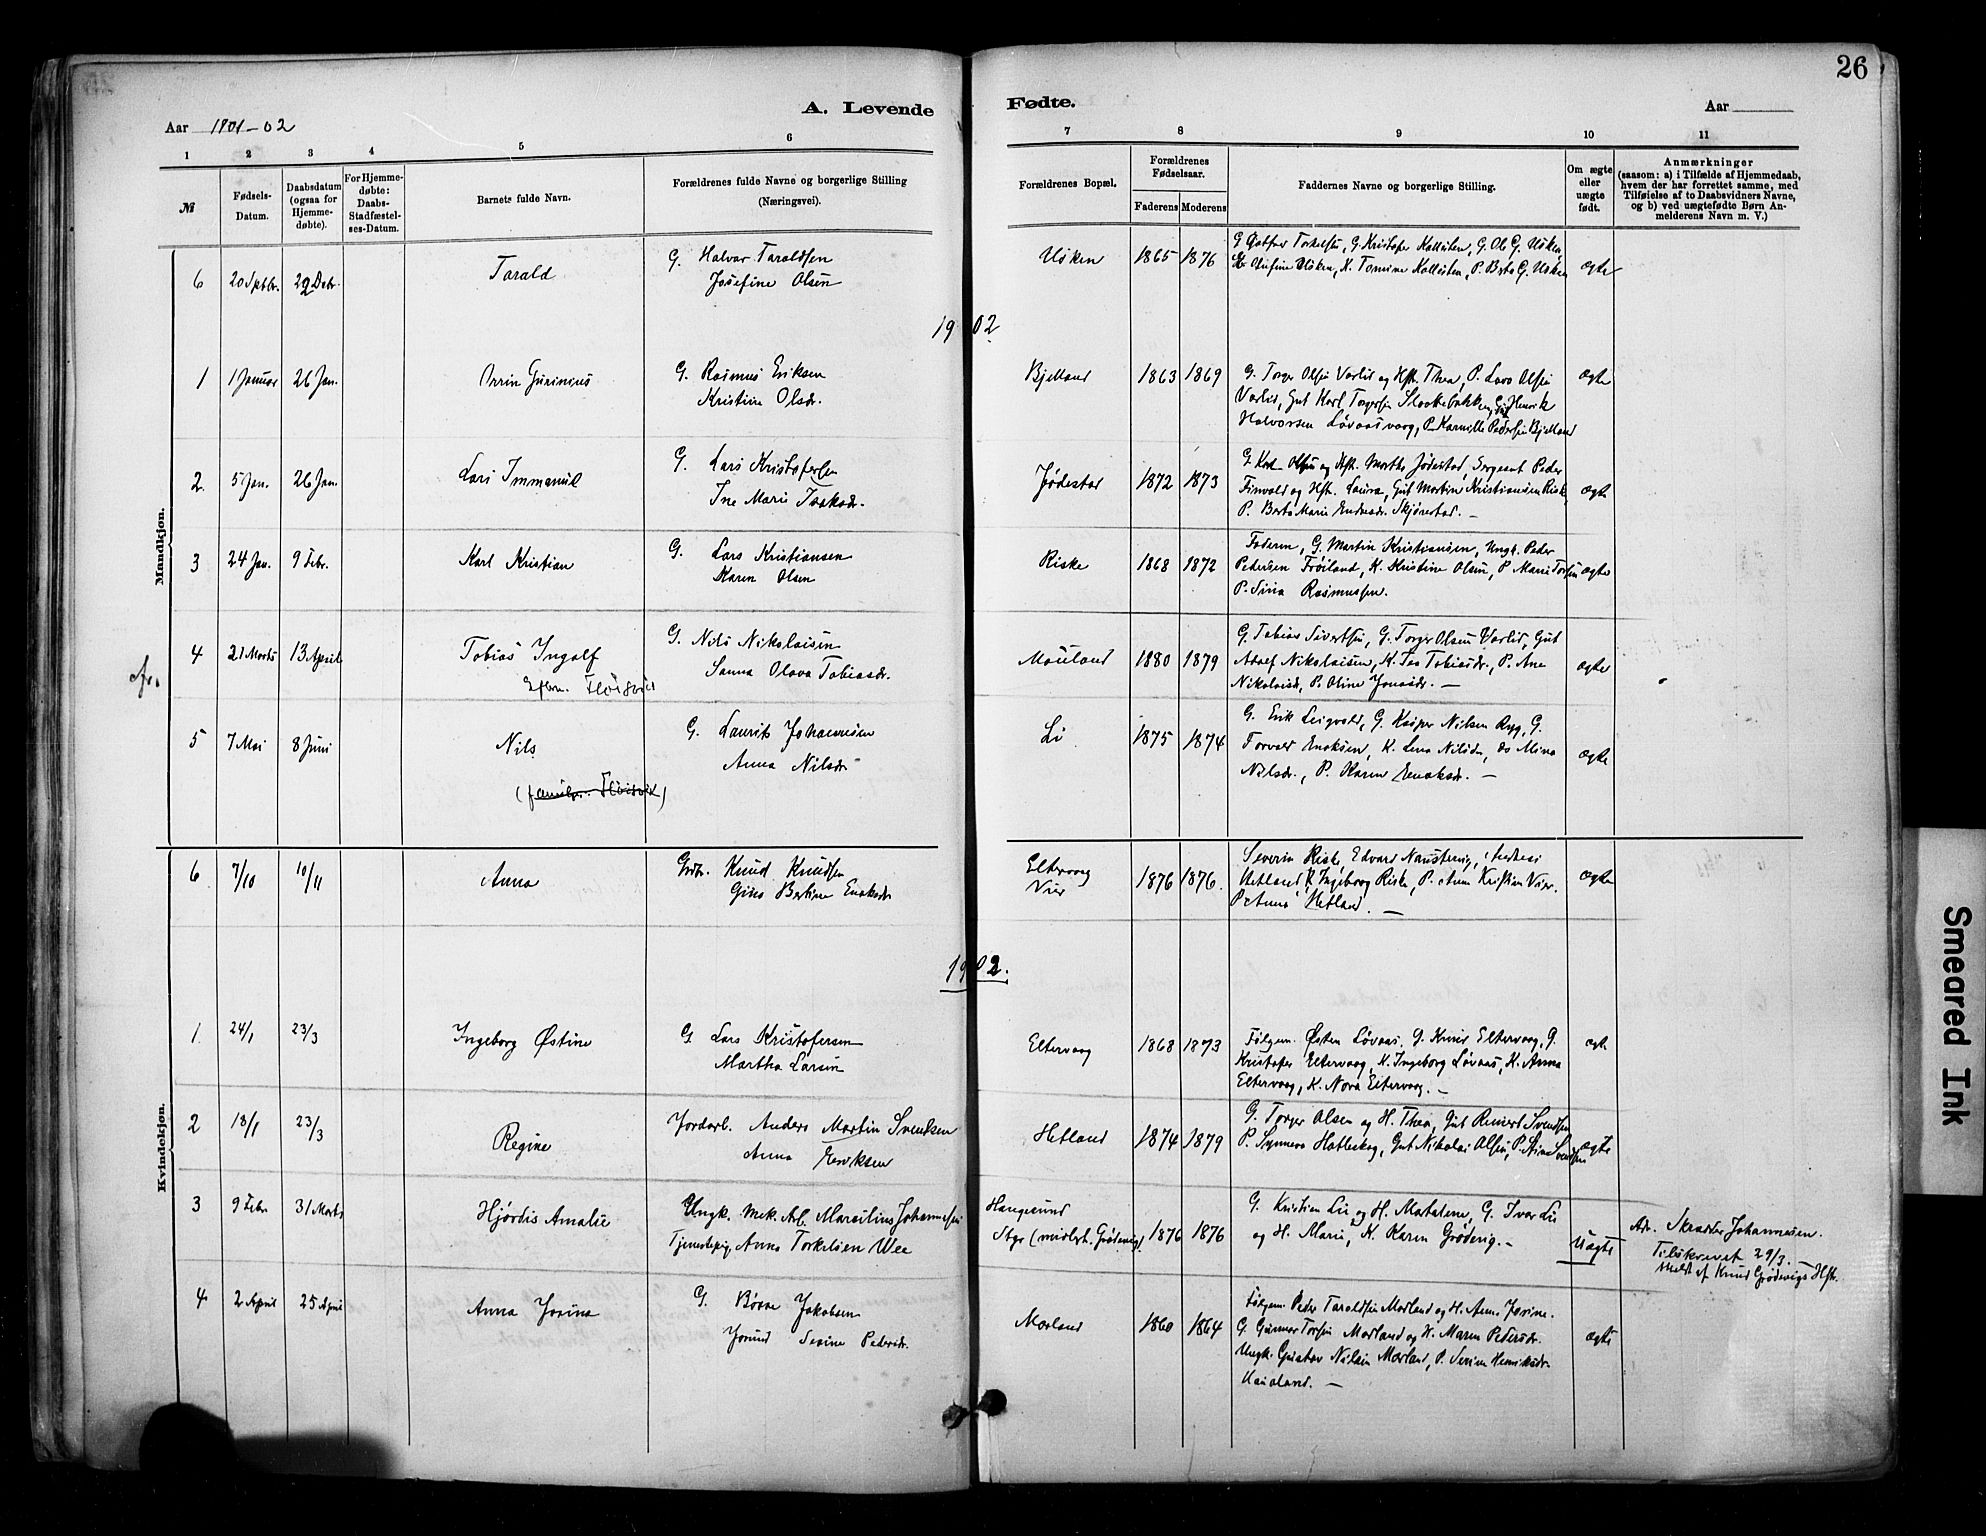 26
A. Levende Fødte.
Aar 1901-02
Aar
1 2 3 4 5 6 7 8 9 10 11
№
Fødsels-Datum.
Daabsdatum (ogsaa for Hjemme-døbte).
For Hjemme-døbte: Daabs-Stadfæstel-ses-Datum.
Barnets fulde Navn.
Forældrenes fulde Navne og borgerlige Stilling (Næringsvei).
Forældrenes Bopæl.
Forældrenes Fødselsaar.
Faderens Moderens
Faddernes Navne og borgerlige Stilling.
Om ægte eller uægte født.
Anmærkninger
(saasom: a) i Tilfælde af Hjemmedaab,
hvem der har forrettet samme, med
Tilføielse af to Daabsvidners Navne,
og b) ved uægtefødte Børn An-
melderens Navn m. V.)
Mandkjøn.
6 20 Sptbr. 22 Debr. Tarald G. Halvar Taraldsen
Josefine Olsen
Usken 1865 1876 G. Kristofer Kallesten, G. Ol. G. Usken
Usken, K. Tomine Kallesten, P. Berta G. Usken ægte
1902
1 1 Januar 26 Jan. Orrin Guninius G. Rasmus Eriksen
Kristine Olsdr.
Bjelland 1863 1869 G. Torger Olsen Varlid og Hst. Thea, P. Lava Olsen
Varlid, Gut Karl Torgersen Henrik
Halvorsen Løvaasvaag, P. Pedersen Bjelland ægte
2. 5 Jan. 26 Jan. Lars Immanuel G. Lars Kristofersen
Ine Marie Isaksdr.
Jødestad 1872 1873 G. Olsen og Hst. Marthe Jødestad, Sergeant Peder
Finvold og Hst. Laura, Gut Martin Kristiansen Riske
P. Berta Marie Endresdr. Skjørestad. - ægte
3 24 Jan. 9 Febr. Karl Kristian G. Lars Kristiansen
Karen Olsen
Riske 1868 1872 Faderen, G. Martin Kristiansen, Ungk. Peder
Petersen Frøiland, K. Kristine Olsen, P. Marie Torsen
P. Sina Rasmussen. ægte
4 21 Marts 13 April Tobias Ingolf G. Nils Nikolaisen
Efbn. Fløisvik Sanna Olava Tobiasdr.
Mauland 1880 1879 G. Tobias Sivertsen, G. Torger Olsen Varlid, Gut
Adolf Nikolaisen, K. Tea Tobiasdr., P. Ane
Nikolaisd, P. Oline Jonasdr. - ægte
5 7 Mai 8 Juni Nils G. Laurits Johannesen
Anna Nilsdr.
(familien. Fløisvik)
Li 1875 1874 G. Erik Leigvold, G. Kasper Nilsen Ryg, G.
Torvald Enoksen, K. Lena Nilsdr, ds Mina
Nilsdr., P. Karen Enoksdr. - ægte
Kvindekjøn.
6 7/10 10/11 Anna Grdbr. Knud Knudsen
Gina Bertine Enoksdr
Eltervaag
Vier 1876 1876. Severin Riske, Edvard
Hetland, K. Ingeborg Riske, P. Kristian Vier.
P. Anna Hetland. - ægte
1902.
1. 24/1 23/3 Ingeborg Østine G. Lars Kristofersen
Martha Larsen
Eltervaag 1868 1873 Følgem. Østen Løvaas, G. Knud Eltervaag, G.
Kristofer Eltervaag, K. Ingeborg Løvaas, K. Anna
Eltervaag, K. Nora Eltervaag. - ægte
2 18/1 23/3 Regine Jordarb. Anders Martin Svendsen
Anna Eriksen
Hetland 1874 1879 G. Torger Olsen og H. Thea, Gut Reinert Svendsen
P. Synnøva Hatleskog, Gut Nikolai Olsen, P. Stina Svendsen ægte
3 9 Febr 31 Marts Hjørdis Amalie Ungk. Mek. Arb. Marsilius Johannesen
Tjenestepig. Anna Torkelsen Wee
Haugesund
Styr (midlert. Grødevig) 1876 1876 G. Kristian Lie og H. Martalene, G. Ivar Lie
og H. Marie, K. Karen Grødevig. - Uægte
Adr. Skrædder Johannesen.
Tilskrevet 29/3. -
Meldt af Knud Grødevigs Hst.
4 2 April 25 April Anna Jorina G. Børre Jakobsen
Jorund Serine Pedersdr.
Morland 1860 1864 Følgem. Peder Taraldsen Morland og H. Anne Jorine.
G. Gunnar Torsen Morland og H. Maren Pedersdr.
Ungk. Gustav Nilsen Morland, P. Serine Henriksdr.
- ægte
Smeared Ink